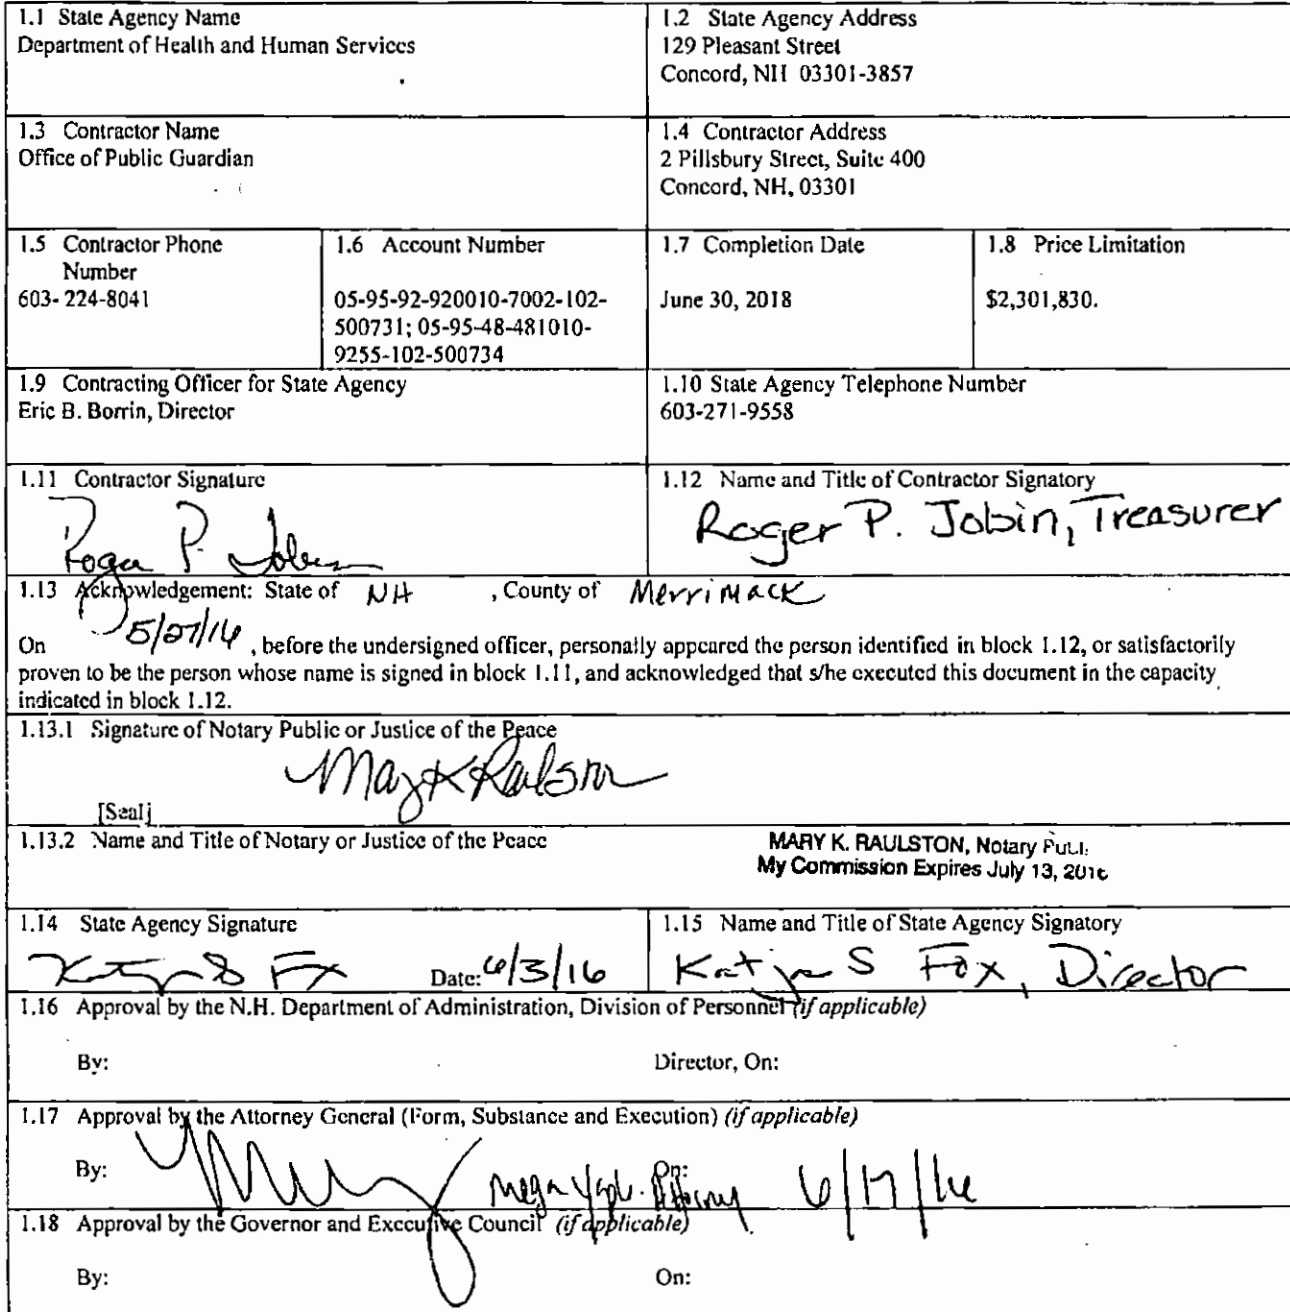 1.1 State Agency Name
Department of Health and Human Services
1.2 State Agency Address
129 Pleasant Street
Concord, NH 03301-3857
1.3 Contractor Name
Office of Public Guardian
1.4 Contractor Address
2 Pillsbury Street, Suite 400
Concord, NH, 03301
1.5 Contractor Phone
Number
603- 224-8041
1.6 Account Number
05-95-92-920010-7002-102-
500731; 05-95-48-481010-
9255-102-500734
1.7 Completion Date
June 30, 2018
1.8 Price Limitation
$2,301,830.
1.9 Contracting Officer for State Agency
Eric B. Borrin, Director
1.10 State Agency Telephone Number
603-271-9558
1.11 Contractor Signature
Roger P. Jobin
1.12 Name and Title of Contractor Signatory
Roger P. Jobin, Treasurer
1.13 Acknowledgement: State of NH , County of Merrimack
On 5/27/16 , before the undersigned officer, personally appeared the person identified in block 1.12, or satisfactorily
proven to be the person whose name is signed in block 1.11, and acknowledged that s/he executed this document in the capacity
indicated in block 1.12.
1.13.1 Signature of Notary Public or Justice of the Peace
Mary K Raulston
[Seal]
1.13.2 Name and Title of Notary or Justice of the Peace
MARY K. RAULSTON, Notary
My Commission Expires July 13,
1.14 State Agency Signature
Date: 6/3/16
1.15 Name and Title of State Agency Signatory
Katja S Fox, Director
1.16 Approval by the N.H. Department of Administration, Division of Personnel (if applicable)
By:
Director, On:
1.17 Approval by the Attorney General (Form, Substance and Execution) (if applicable)
By: Attorney On: 6/17/16
1.18 Approval by the Governor and Executive Council (if applicable)
By:
On: